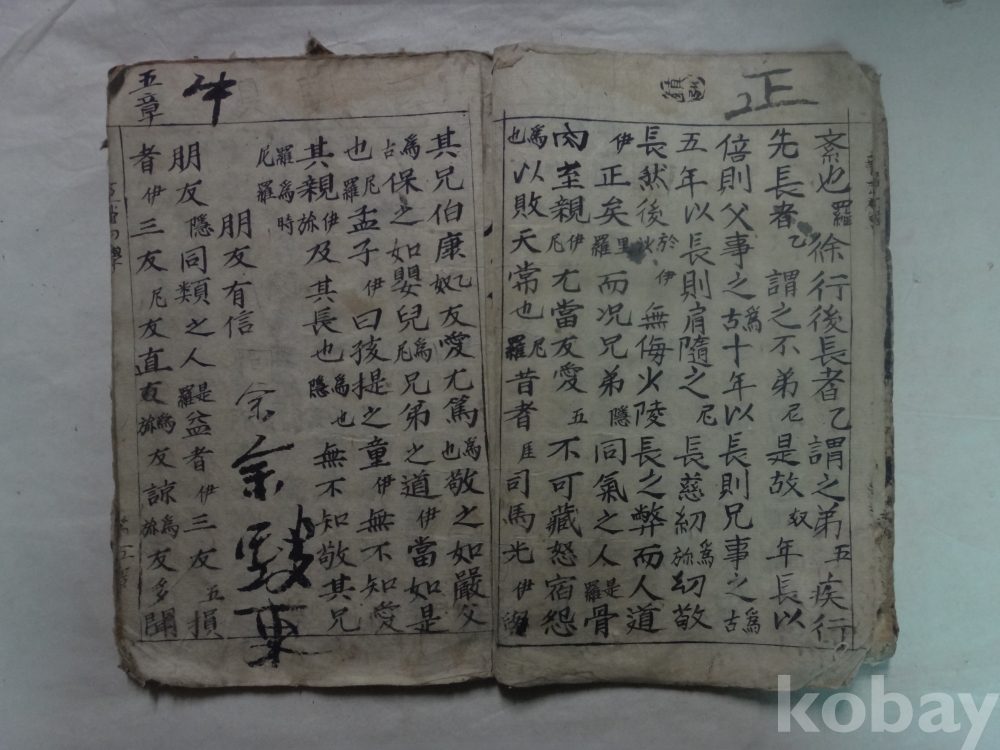 正
紊也羅徐行後長者乙謂之弟五疾行
先長者乙謂之不弟尼是故奴年長以
倍則父事之爲古十年以長則兄事之爲古
五年以長則肩隨之尼長慈幼爲旀幼敬
長然後於狄伊無侮少陵長之弊而人道
伊正矣羅里而况兄弟隱同氣之人是羅骨
肉至親伊尼尤當友愛五不可藏怒宿怨
爲也以敗天常也尼羅昔者厓司馬光伊
其兄伯康乙奴友愛尤篤爲也敬之如嚴父
爲古保之如嬰兒爲尼兄弟之道伊當如是
也尼羅孟子伊曰孩提之童伊無不知愛
其親伊旀及其長也爲也隱無不知敬其兄
羅爲時尼羅
朋友有信
余
東
朋友隱同類之人是羅益者伊三友五損
者伊三友尼友直爲旀友諒爲旀友多聞
五章
kobay